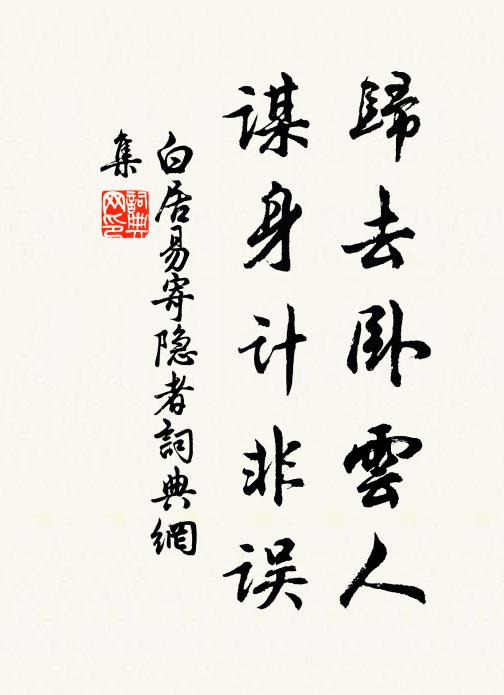 歸去卧雲人
谋身计非误
白居易寄隐者詞典網
集
詞典网印